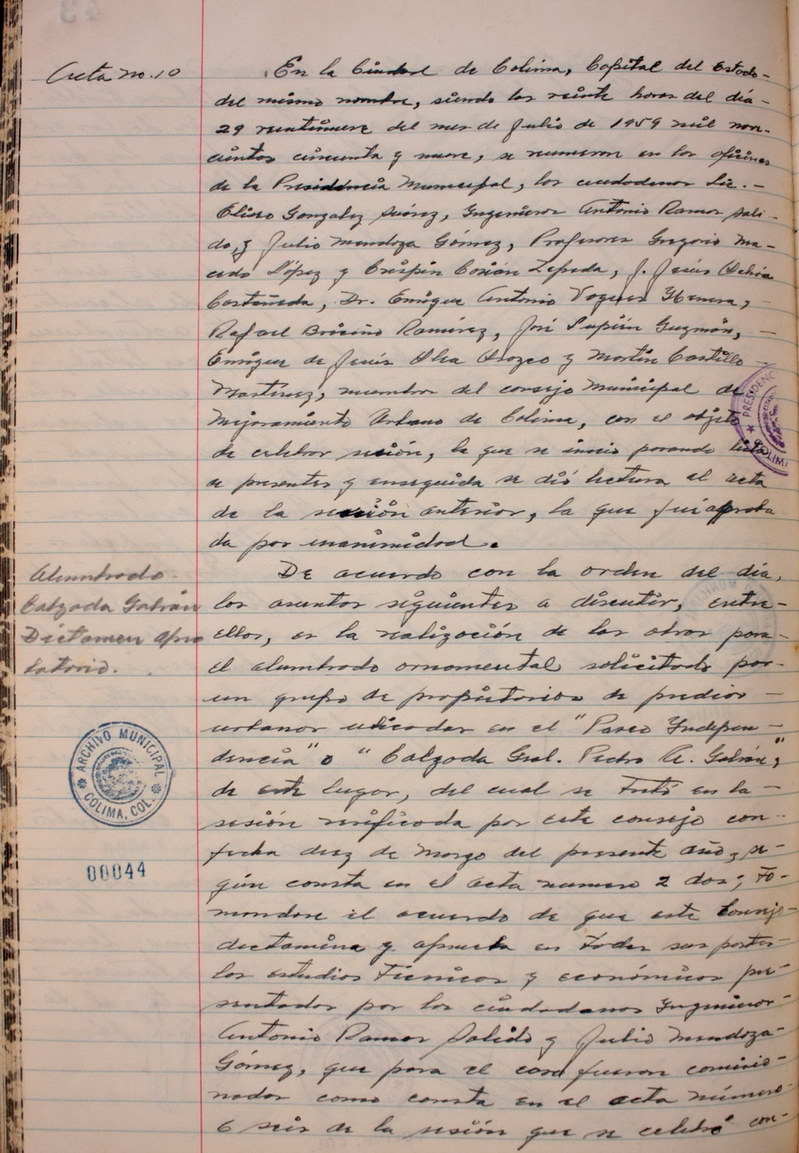 Acta no. 10
En la Ciudad de Colima, Capital del Estado-
del mismo nombre, siendo las veinte horas del día-
29 veintinueve del mes de Julio de 1959 mil nove-
cientos cincuenta y nueve, se reunieron en las oficinas
de la Presidencia Municipal, los ciudadanos Lic. -
Eliseo González Suárez, Ingenieros Antonio Ramos Sali-
do, y Julio Mendoza Gómez, Profesores Gregorio Ma-
cedo López y Crispín Corián Zepeda, J. Jesús
Castañeda, Dr. Enrique Antonio Herrera, -
Rafael Briceño Ramírez, José Lupián Guzmán, -
Enrique de Jesús Orozco y Martín Castillo
Martínez, miembros del consejo Municipal de
Mejoramiento Urbano de Colima, con el objeto
de celebrar sesión, la que se inicio pasando lista
de presentes y enseguida se dió lectura al acta
de la sesión anterior, la que fué aproba
da por unanimidad.
Alumbrado
Calzada Galván
Dictamen apro
batorio.
De acuerdo con la orden del día,
los asuntos siguientes a discutir, entre-
ellos, es la realización de las obras para
el alumbrado ornamental solicitado por-
un grupo de propietarios de predios -
urbanos ubicados en el "Paseo Indepen -
dencia" o "Calzada Gral. Pedro A. Galván",
de este lugar, del cual se trató en la -
sesión verificada por este consejo con-
fecha diez de marzo del presente año, se-
gún consta en el acta numero 2 dos; to-
mandose el acuerdo de que este Consejo
dictamina y aprueba en todas sus partes
los estudios técnicos y económicos pre-
sentados por los ciudadanos Ingenieros-
Antonio Ramos Salido y Julio Mendoza-
Gómez, que para el caso fueron comisio-
nados como consta en el acta número
6 seis de la sesión que se celebró con-
PRESIDENCIA
ARCHIVO MUNICIPAL
COLIMA, COL.
00044